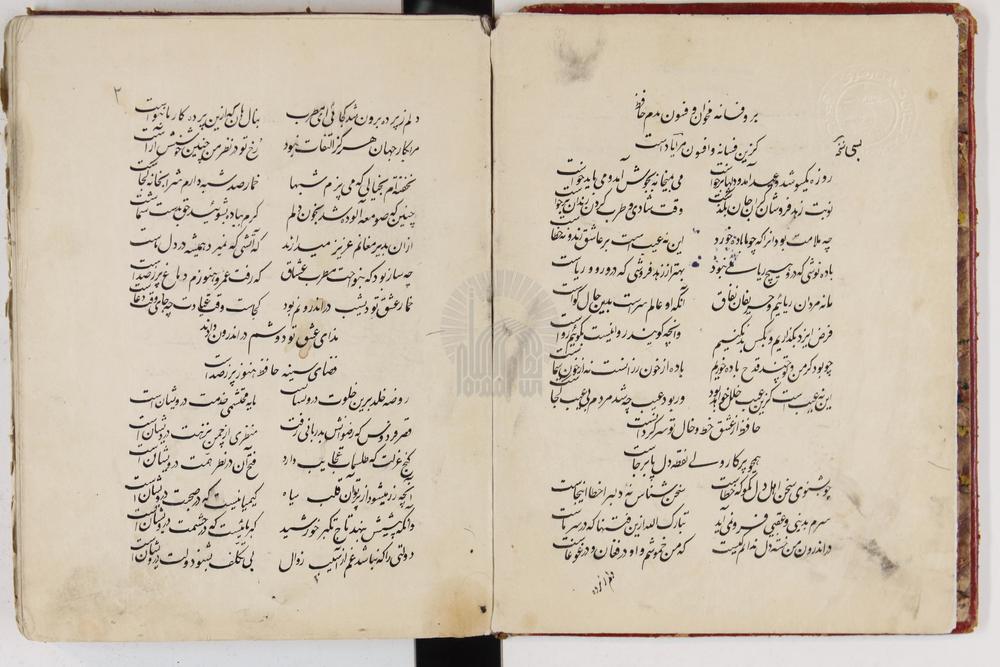 برو فسانه مخوان و فسون مدم حافظ
کزین فسانه و افسون مرا بیاد است
روزه یکسو شد و عید آمد و دلها برخاست می ز میخانه بجوش آمد و می باید خواست
نوبت زهد فروشان گران جان بگذشت وقت شادی و طرب کردن رندان برخاست
چه ملامت بود آنرا که چو ما باده خورد این نه عیب است بر عاشق رند و نه خطاست
باده نوشی که درو هیچ ریائی نبود بهتر از زهد فروشی که درو روی و ریاست
ما نه مردان ریائیم و حریفان نفاق آنکه او عالم سر است بدین حال گواست
فرض ایزد بگذاریم و بکس بد نکنیم وانچه گویند روا نیست نگوئیم رواست
چه بود گر من و تو چند قدح باده خوریم باده از خون رزانست نه از خون شماست
این نه عیب است کزین عیب خلل خواهد بود ور بود عیب چه شد مردم بی عیب کجاست
حافظ از عشق خط و خال تو سرگردانست
همچو پرگار ولی نقطه دل پابرجاست
چو بشنوی سخن اهل دل مگو که خطاست سخن شناس نه دلبرا خطا اینجاست
سرم بدنیی و عقبی فرو نمی آید تبارک الله ازین فتنها که در سر ماست
در اندرون من خسته دل ندانم کیست که من خموشم و او در فغان و در غوغاست
دلم ز پرده
۲
دلم ز پرده برون شد کجائی ای مطرب بنال هان که ازین پرده کار ما بنواست
مرا بکار جهان هرگز التفات نبود رخ تو در نظر من چنین خوشش آراست
نخفته ام بخیالی که می پزم شبها خمار صد شبه دارم شرابخانه کجاست
چنین که صومعه آلوده شد بخون دلم گرم بباده بشوئید حق بدست شماست
از آن بدیر مغانم عزیز میدارند که آتشی که نمیرد همیشه در دل ماست
چه ساز بود که بنواخت مطرب عشاق که رفت عمر و هنوزم دماغ پر ز صداست
خمار عشق تو دیشب در اندرونم بود
ندای عشق تو دوشم در اندرون دادند
فضای سینه حافظ هنوز پر ز صداست
روضه خلد برین خلوت درویشانست مایه محتشمی خدمت درویشان است
قصر فردوس که رضوانش بدربانی رفت منظری از چمن نزهت درویشان است
گنج عزلت که طلسمات عجایب دارد فتح آن در نظر همت درویشان است
آنچه زر میشود از پرتو آن قلب سیاه کیمیائیست که در صحبت درویشان است
وانکه پیشش بنهد تاج تکبر خورشید کبریائیست که در حشمت درویشان است
دولتی را که نباشد غم از آسیب زوال بی تکلف بشنو دولت درویشان است